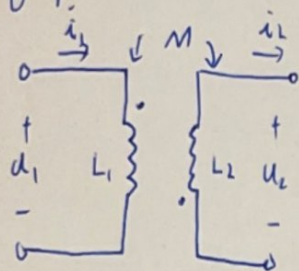 i₁ M i₂
+ +
u₁ L₁ L₂ u₂
- -